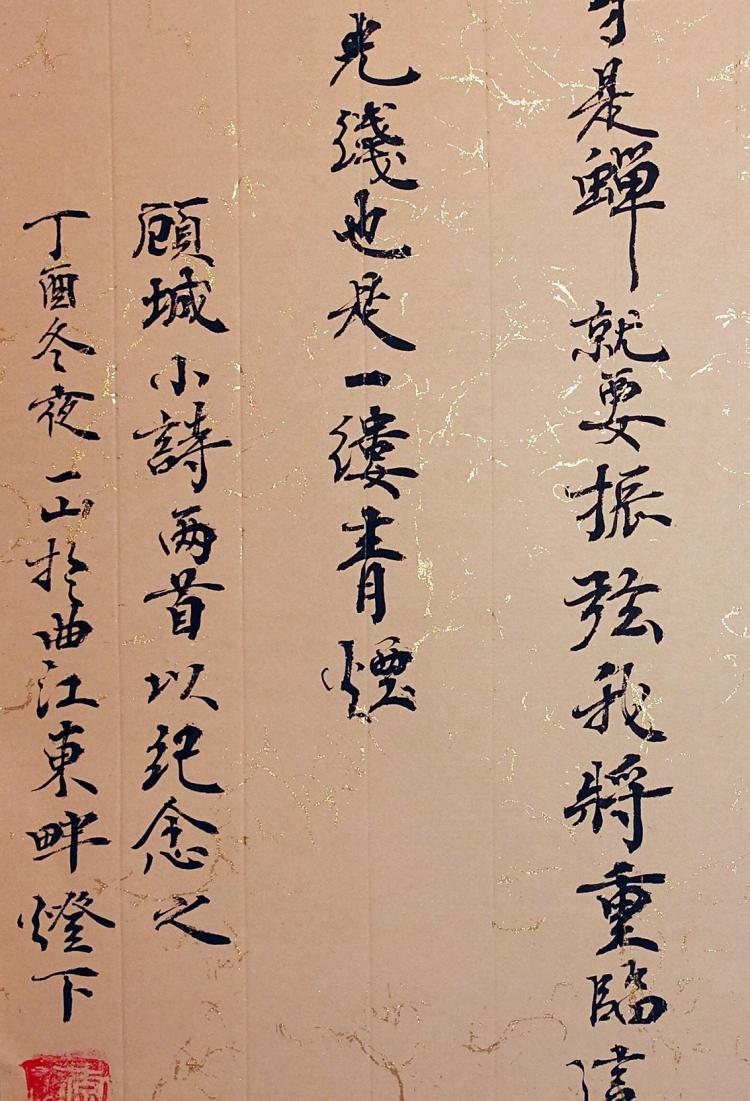 是蟬就要振弦我將重臨
光綫也是一缕青煙
顧城小詩兩首以紀念之
丁酉冬夜一山於曲江東畔燈下